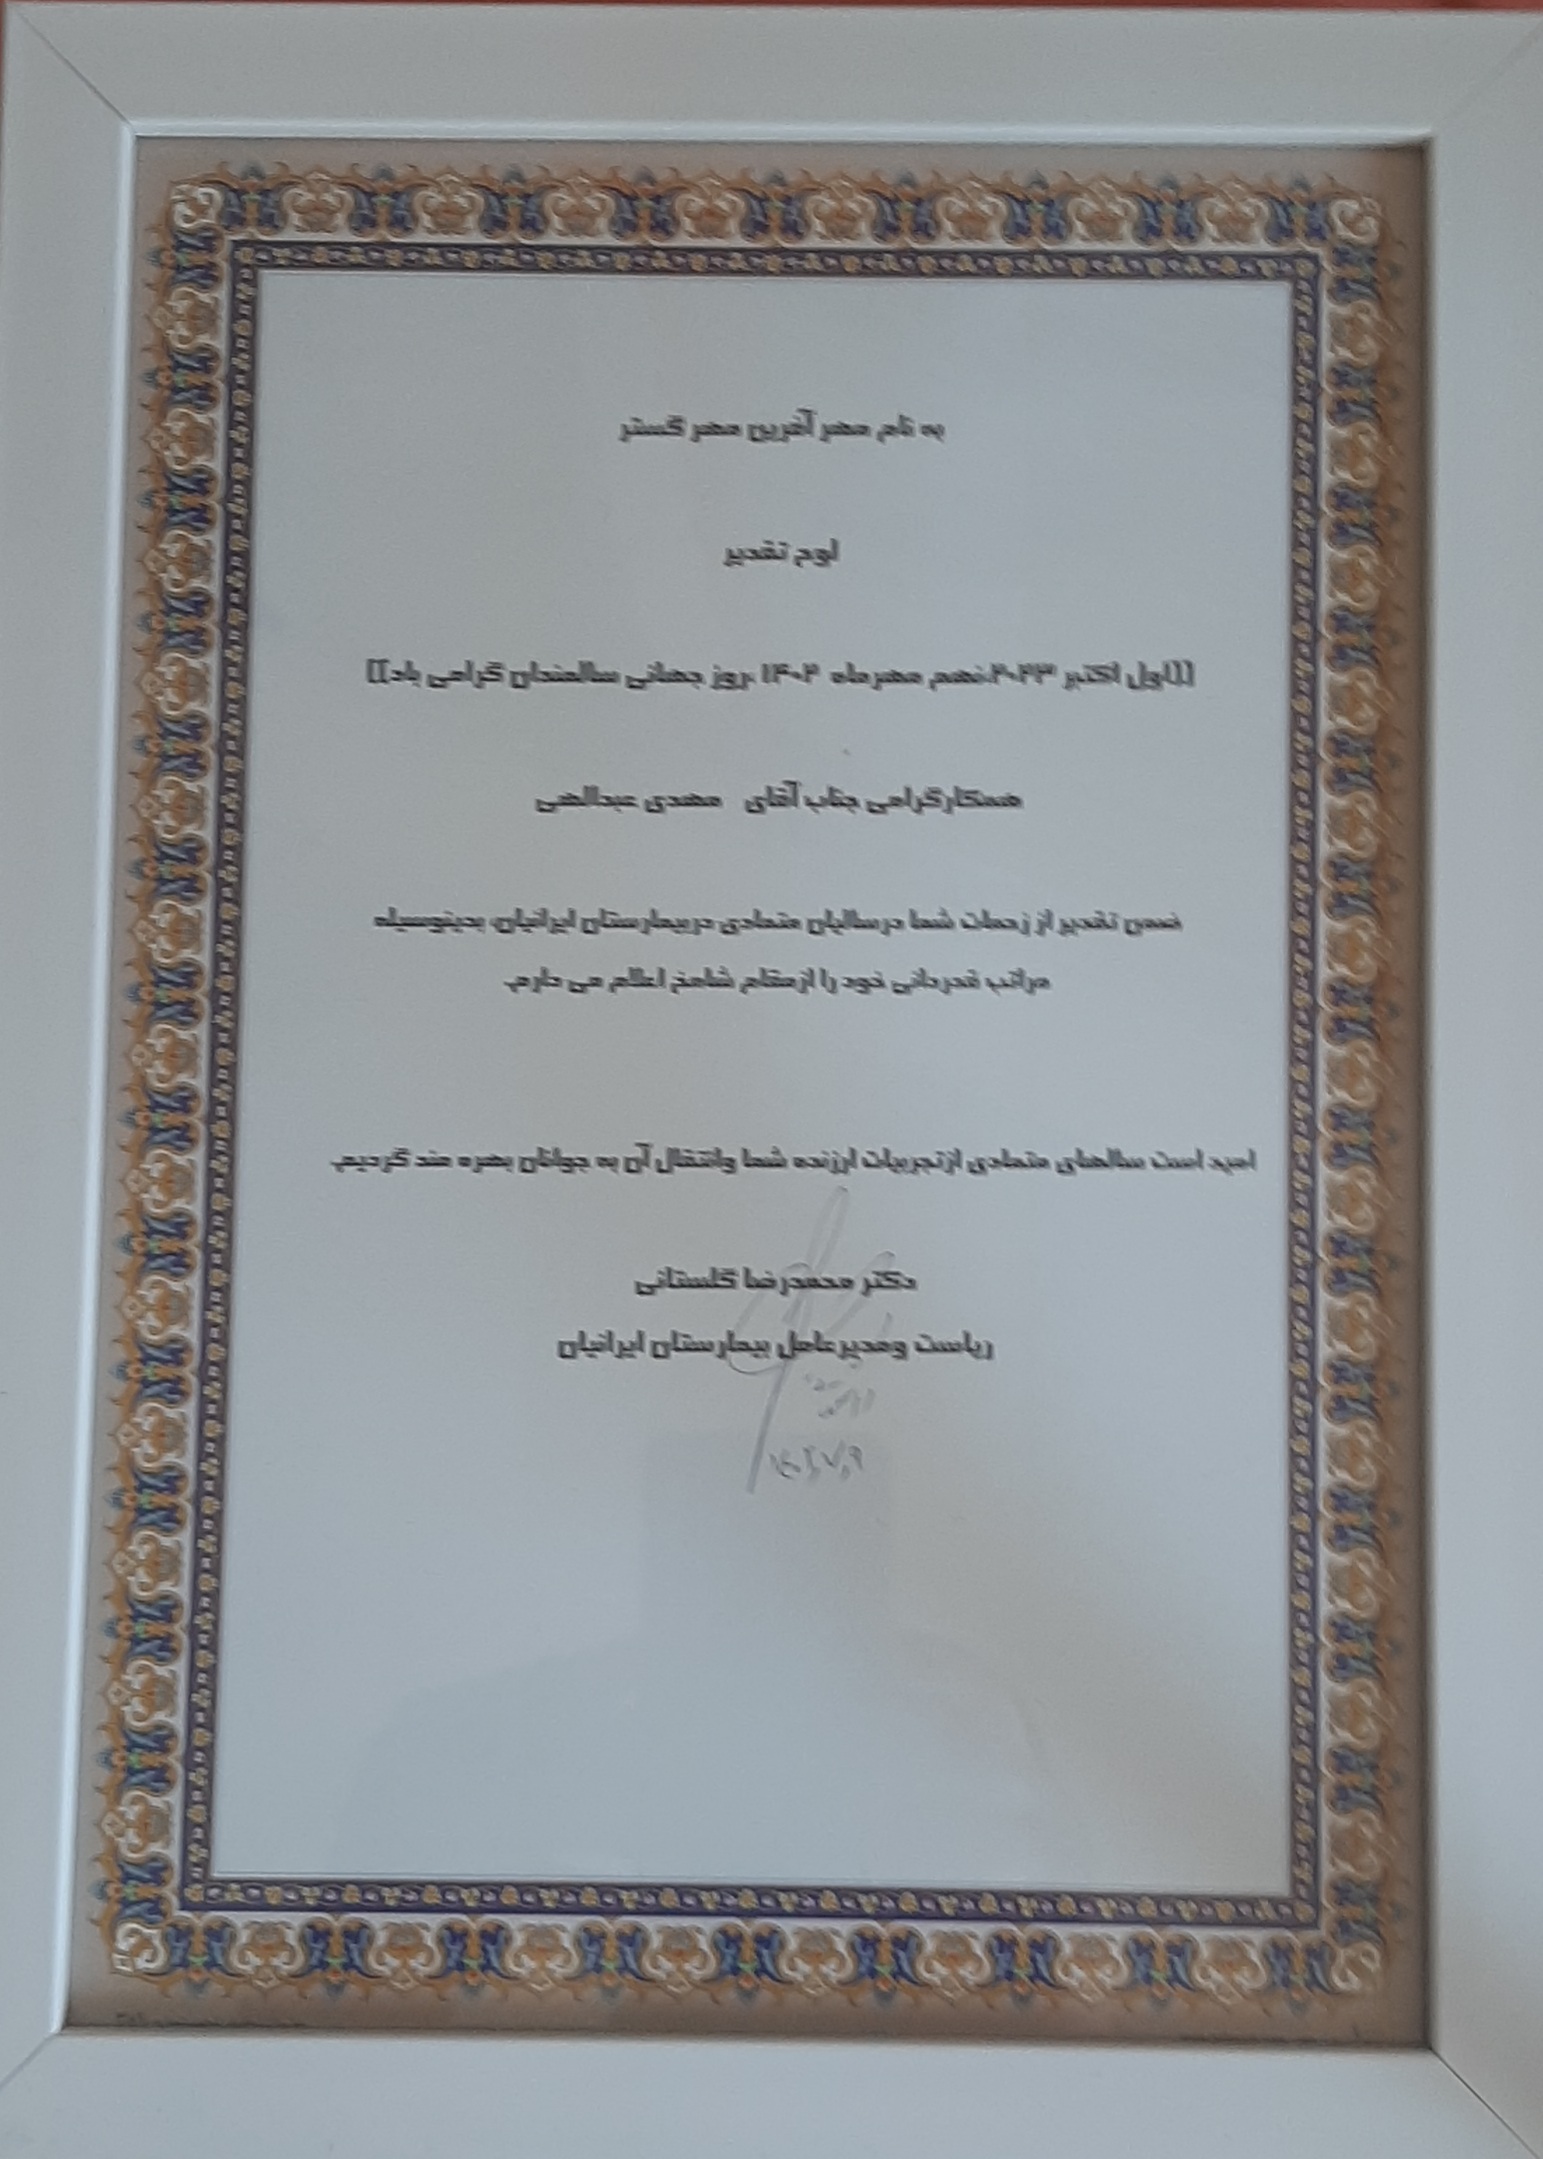 به نام مهر آفرین مهر گستر
لوح تقدیر
[[اول اکتبر ۲۰۲۳،نهم مهرماه ۱۴۰۲ ،روز جهانی سالمندان گرامی باد]]
همکارگرامی جناب آقای مهدی عبدالهی
ضمن تقدیر از زحمات شما درسالیان متمادی دربیمارستان ایرانیان، بدینوسیله
مراتب قدردانی خود را ازمقام شامخ اعلام می دارم.
امید است سالهای متمادی ازتجربیات ارزنده شما وانتقال آن به جوانان بهره مند گردیم.
دکتر محمدرضا گلستانی
ریاست ومدیرعامل بیمارستان ایرانیان
۱۴۰۲,۷,۹